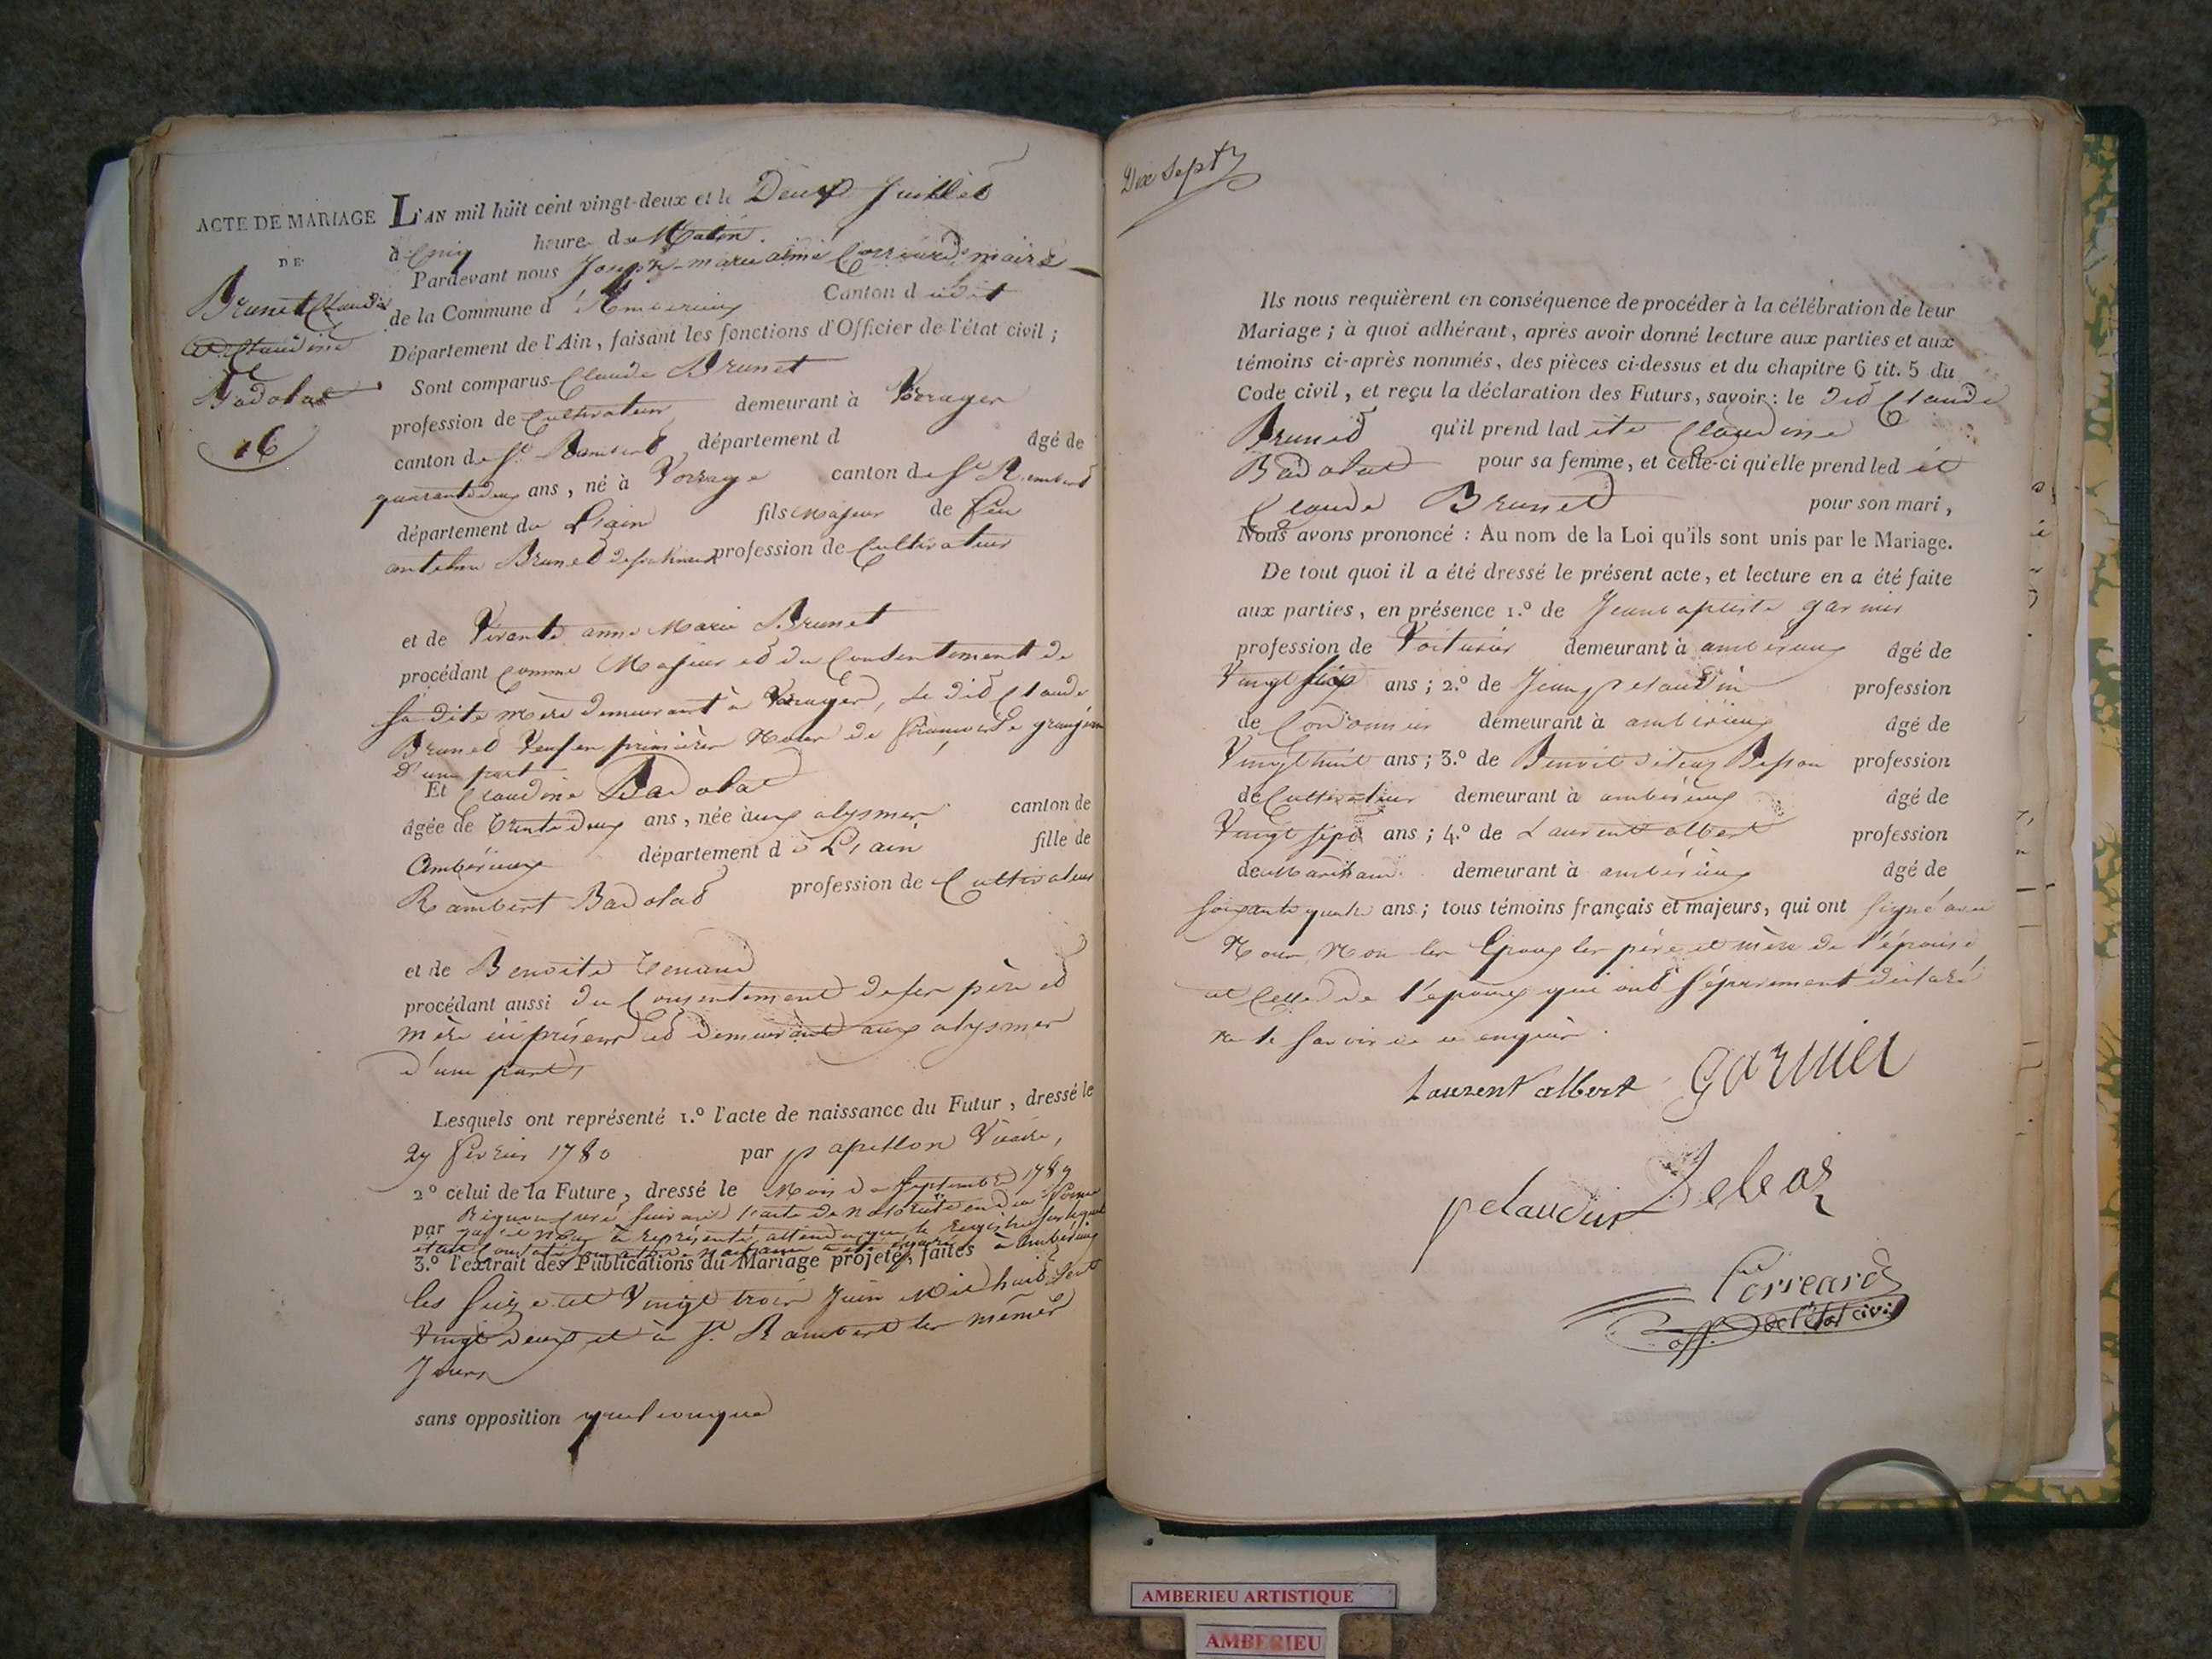 ACTE DE MARIAGE
DE
Brunet Claude
et Claudine
Badolat
16
L'AN mil huit cent vingt-deux et le Deux Juillet
à Cinq heure du Matin.
Pardevant nous Joseph-marie aimé Correard maire
de la Commune d'Amberieux Canton dudit
Département de l'Ain, faisant les fonctions d'Officier de l'état civil;
Sont comparus Claude Brunet
profession de Cultivateur demeurant à
canton de St Rambert département d âgé de
quarante deux ans, né à canton de St Rambert
département de L'ain fils Majeur de feu
antelme Brunet profession de Cultivateur
et de Vivante anne Marie Brunet
procédant comme Majeur et du Consentement de
sa dite mère demeurant à , Le dit Claude
Brunet Veuf en premières Noces de
D'une part
Et Claudine Badolat
âgée de trente deux ans, née aux abysmes canton de
Ambérieux département de L'ain fille de
Rambert Badolat profession de Cultivateur
et de Benoite Tenand
procédant aussi du Consentement de ses père et
mère ici présens et demeurant aux abysmes
d'une part,
Lesquels ont représenté 1.º l'acte de naissance du Futur, dressé le
27 fevrier 1780 par papillon Vicaire,
2º celui de la Future, dressé le Mois de Septembre 1789
par curé suivant l'acte de Notoriété
représenté, attendu que le Registre
acte de Naissance a été égaré
3.º l'extrait des Publications du Mariage projeté, faites à Ambérieux
les Seize et Vingt trois Juin Mil huit Cent
Vingt deux et à St Rambert les mêmes
Jours
sans opposition quelconque
Dix Sept
Ils nous requièrent en conséquence de procéder à la célébration de leur
Mariage; à quoi adhérant, après avoir donné lecture aux parties et aux
témoins ci-après nommés, des pièces ci-dessus et du chapitre 6 tit. 5 du
Code civil, et reçu la déclaration des Futurs, savoir: le dit Claude
Brunet qu'il prend ladite Claudine
Badolat pour sa femme, et celle-ci qu'elle prend ledit
Claude Brunet pour son mari,
Nous avons prononcé: Au nom de la Loi qu'ils sont unis par le Mariage.
De tout quoi il a été dressé le présent acte, et lecture en a été faite
aux parties, en présence 1.º de Jean baptiste garnier
profession de Voiturier demeurant à ambérieux âgé de
Vingt six ans; 2.º de Jean pelaudin profession
de Cordonnier demeurant à ambérieux âgé de
Vingt huit ans; 3.º de Benoit profession
de Cultivateur demeurant à ambérieux âgé de
Vingt sept ans; 4.º de Laurent albert profession
de demeurant à ambérieux âgé de
soixante quatre ans; tous témoins français et majeurs, qui ont signé avec
Nous Non les Epoux les père et mère de l'épouse
et Celle de l'epoux qui ont séparement déclaré
ne le savoir de ce enquis.
Laurent albert garnier
pelaudin
Correard
off. de l'état civil
AMBERIEU ARTISTIQUE
AMBERIEU